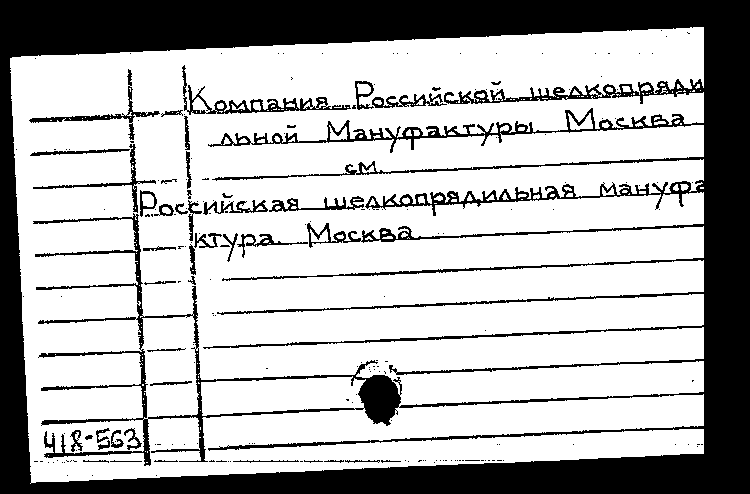 Компания Российской шелкопряди
льной Мануфактуры. Москва
см.
Российская шелкопрядильная мануфа
ктура. Москва.
418-563